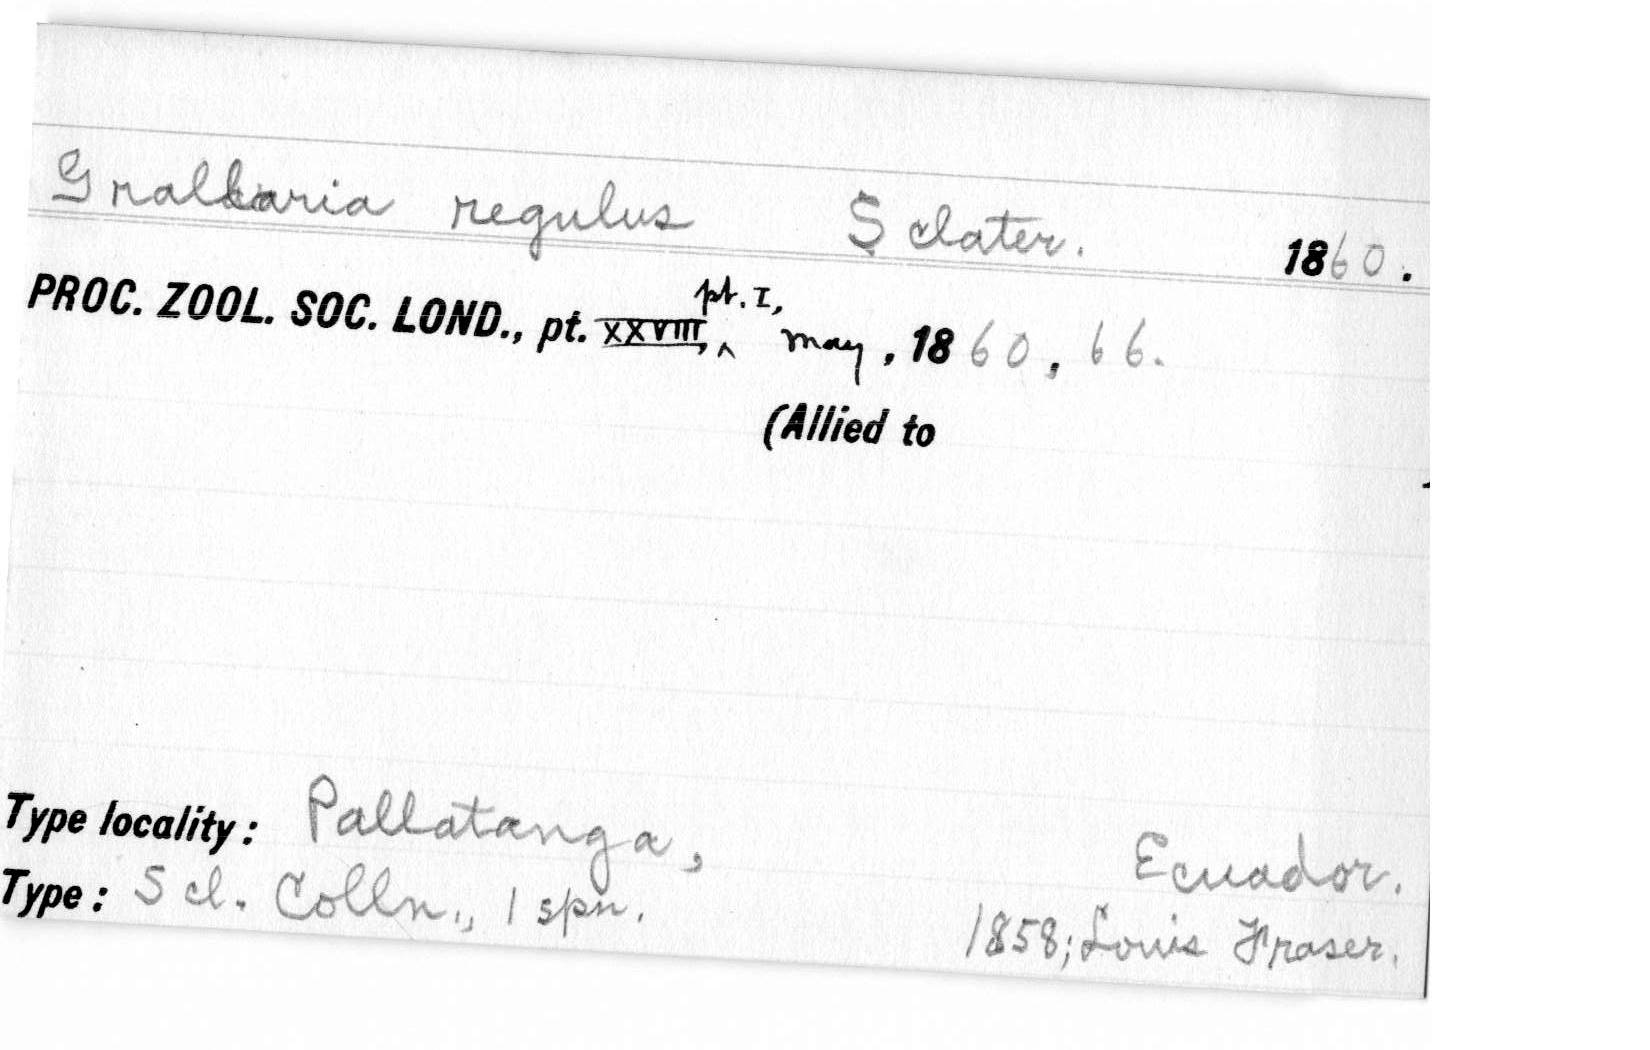 Grallaria regulus Sclater. 1860.
pt. I,
PROC. ZOOL. SOC. LOND., pt. XXVIII, ^ May, 1860, 66.
(Allied to
Type locality: Pallatanga, Ecuador.
Type: Scl. Colln., 1 spn. 1858; Louis Fraser.